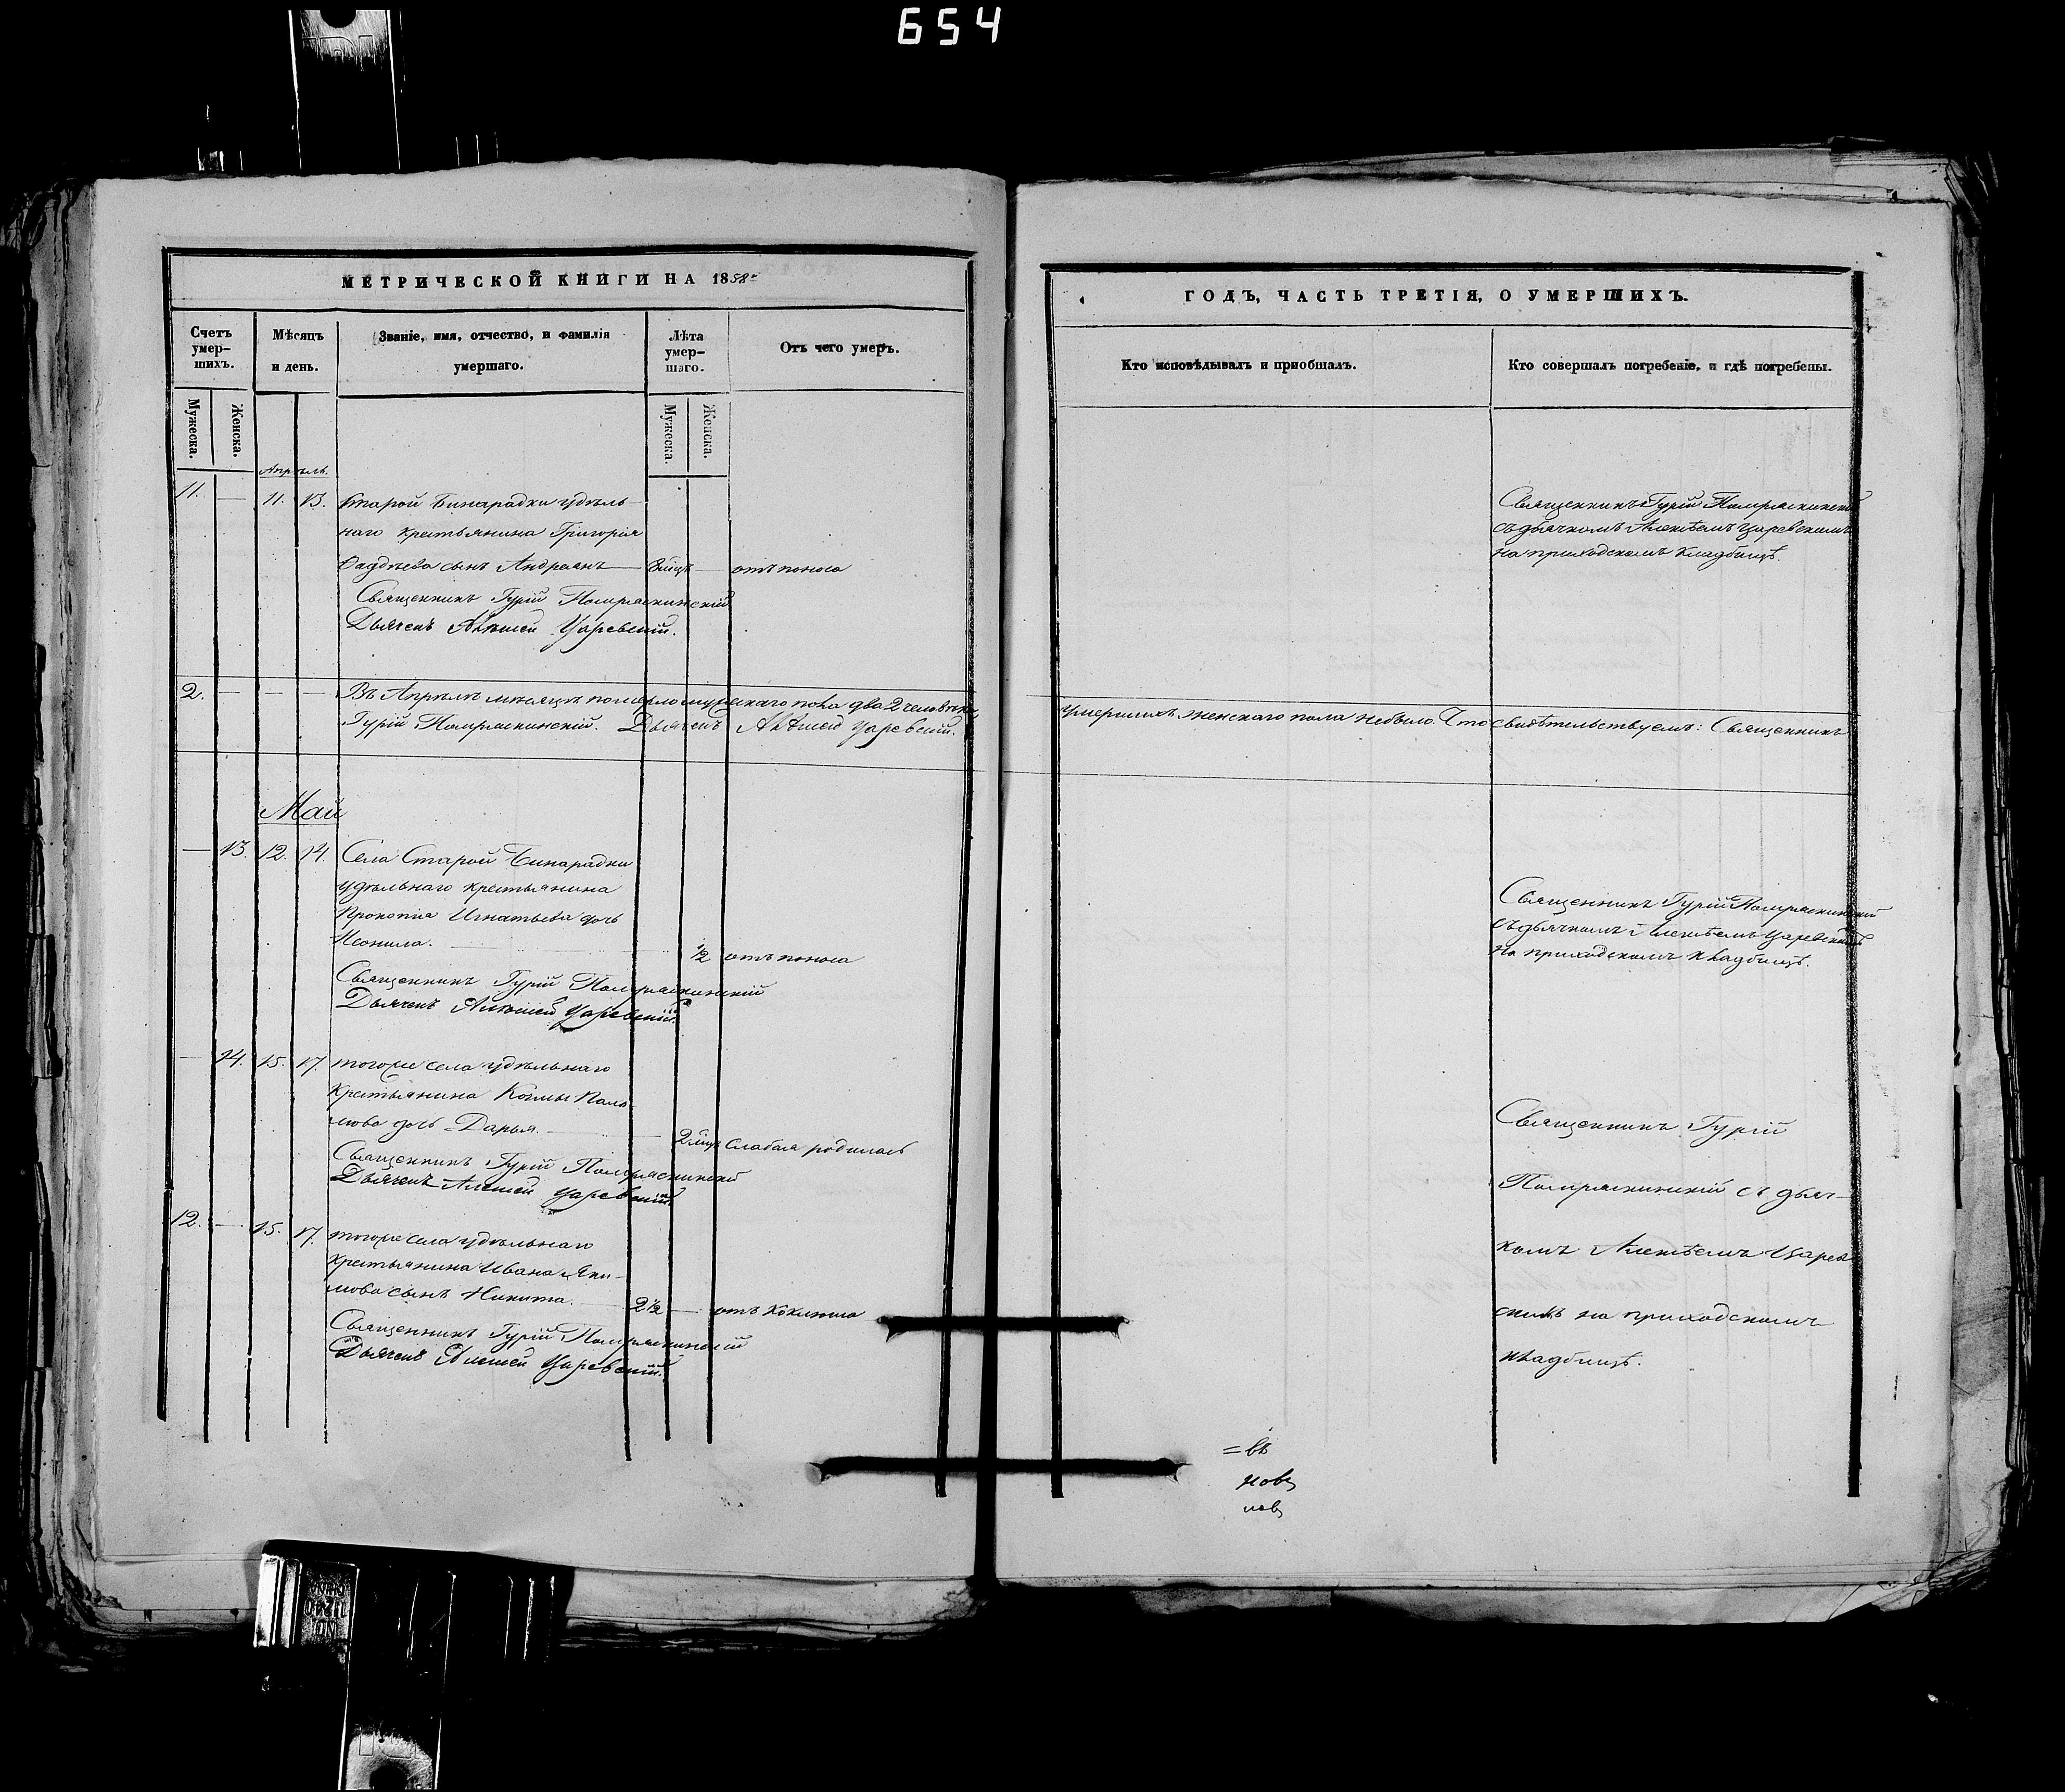 654
МЕТРИЧЕСКОЙ КНИГИ НА 1858й
Счетъ умер-
шихъ.
Мѣсяцъ
и день.
Званіе, имя, отчество, и фамилія
умершаго.
Лѣта
умер-
шаго.
Отъ чего умеръ.
Мужеска.
Женска.
Мужеска.
Женска.
Апрѣль.
11. — 11. 13. Старой Бинарадки удѣль-
наго крестьянина Григорія
Фаддѣева сынъ Андреянъ — 8 мцъ — отъ поноса
Священникъ Гурій Помряскинскій
Дьячекъ Алексей Царевскій.
2. — — — Въ Апрѣлѣ мѣсяцѣ померло мужескаго пола два 2 человѣка,
Гурій Помряскинскій. Дьячекъ Алексей Царевскій.
Май
— 13. 12. 14. Села Старой Бинарадки
удѣльнаго крестьянина
Прокопія Игнатьева дочь
Неонила. — ½ отъ поноса
Священникъ Гурій Помряскинскій
Дьячекъ Алексей Царевскій.
— 14. 15. 17. тогоже села удѣльнаго
крестьянина Козмы
дочь Дарья. — 2 мцъ слабая родилась
Священникъ Гурій Помряскинскій
Дьячекъ Алексей Царевскій.
12. — 15. 17. тогоже села удѣльнаго
крестьянина Ивана Яки-
мова сынъ Никита. — 2½ — отъ коклюша
Священникъ Гурій Помряскинскій
Дьячекъ Алексей Царевскій.
ГОДЪ, ЧАСТЬ ТРЕТІЯ, О УМЕРШИХЪ.
Кто исповѣдывалъ и пріобщалъ.
Кто совершалъ погребеніе, и гдѣ погребены.
Священникъ Гурій Помряскинскій
съ дьячкомъ Алексѣемъ Царевскимъ
на приходскомъ кладбищѣ.
умершихъ женскаго пола небыло. Что свидѣтельствуемъ: Священникъ
Священникъ Гурій Помряскинскій
съ дьячкомъ Алексѣемъ Царевскимъ
на приходскомъ кладбищѣ.
Священникъ Гурій
Помряскинскій съ дьяч-
комъ Алексѣемъ Царев-
скимъ на приходскомъ
кладбищѣ.
= въ